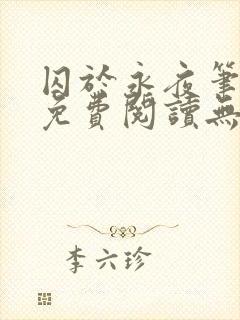 囚於永夜筆
免費閱讀無
李六珍